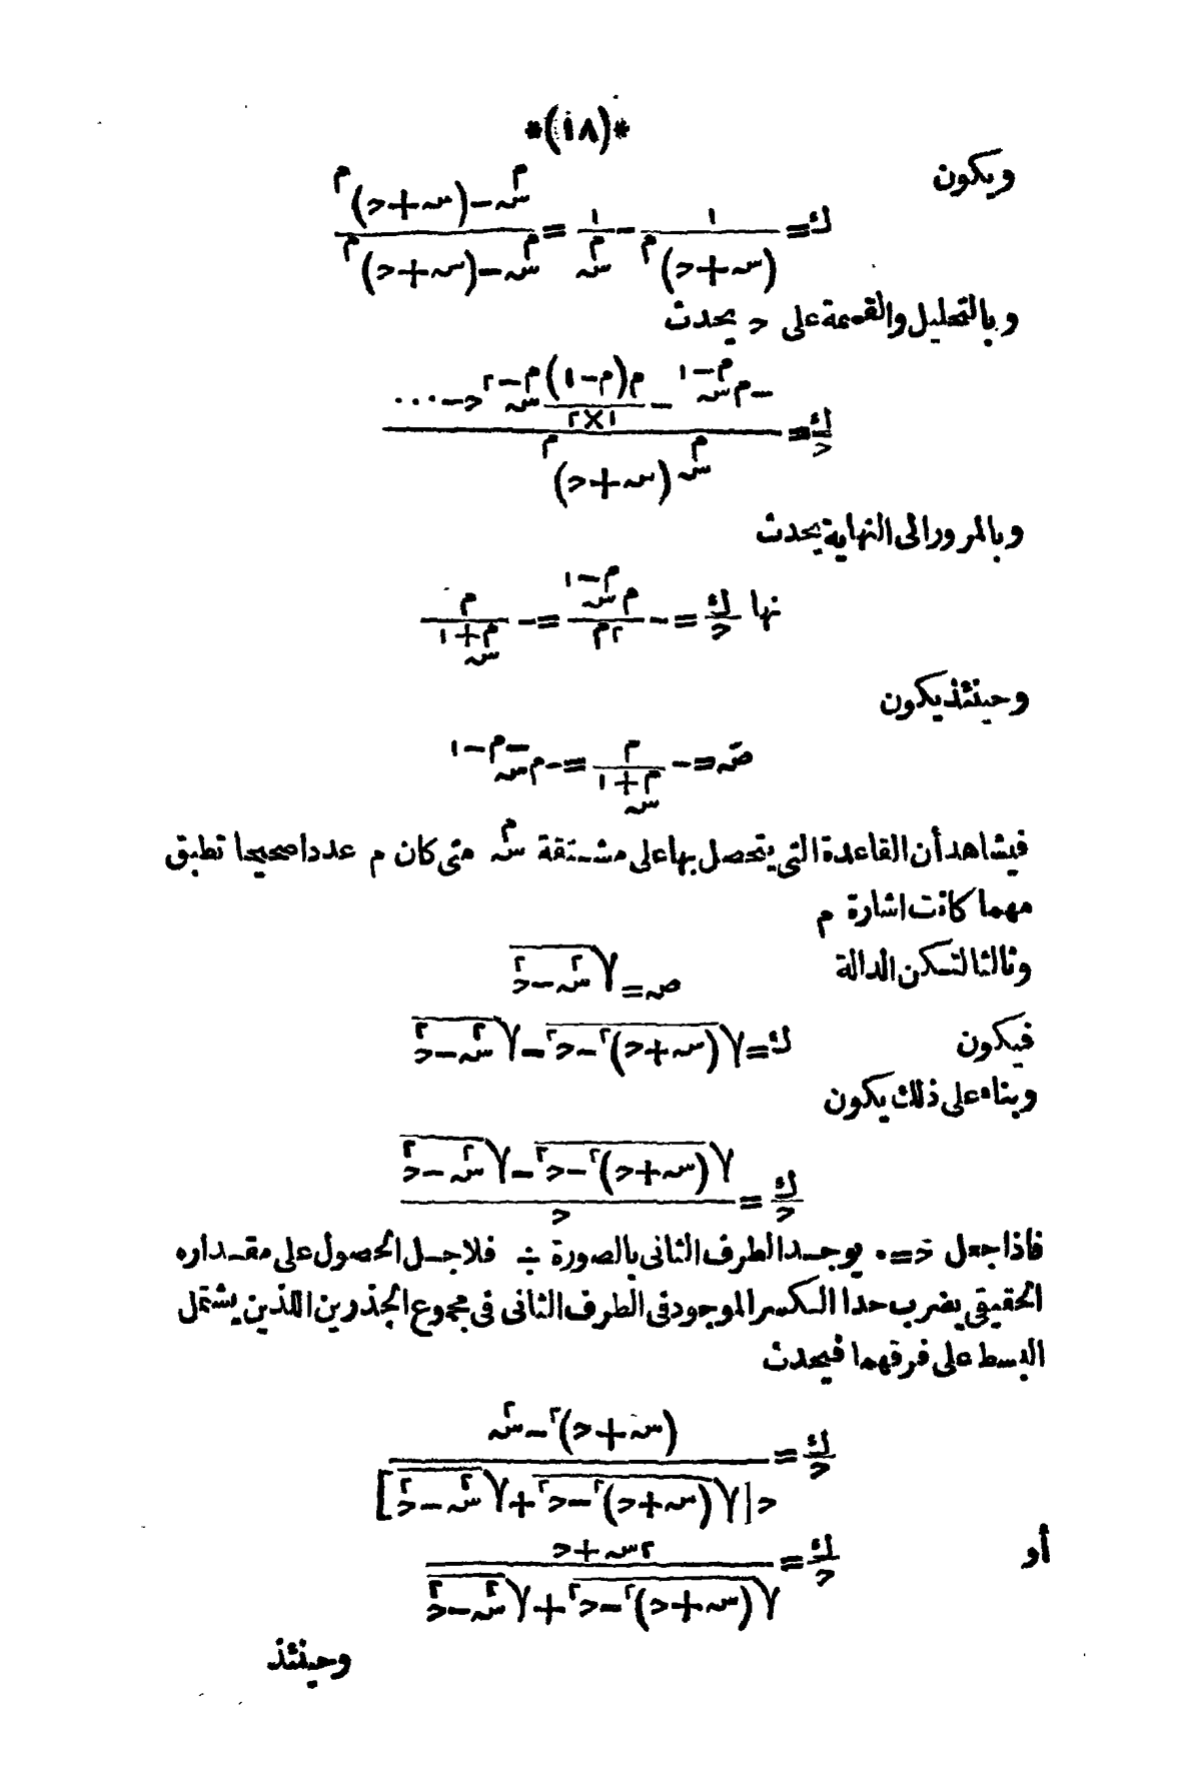 *(١٨)*
ويكون
ك = ١/(س+ح)^م − ١/س^م = (س^م − (س+ح)^م)/(س^م − (س+ح)^م)
وبالتحليل والقسمة على ح يحدث
ك/ح = (−م س^(م−١) − (م(م−١)/١×٢) س^(م−٢) ح − ...)/(س^م (س+ح)^م)
وبالمرور الى النهاية يحدث
نها ك/ح = − م س^(م−١)/٢م = − م/س^(م+١)
وحينئذ يكون
صَ = − م/س^(م+١) = −م س^(−م−١)
فيشاهد أن القاعدة التى يتحصل بها على مشتقة س^م متى كان م عددا صحيحا تطبق
مهما كانت اشارة م
وثالثا لتكن الدالة
ص = √(س^٢ − ح^٢)
فيكون ك = √((س+ح)^٢ − ح^٢) − √(س^٢ − ح^٢)
وبناء على ذلك يكون
ك/ح = (√((س+ح)^٢ − ح^٢) − √(س^٢ − ح^٢))/ح
فاذا جعل ح = ٠ يوجد الطرف الثانى بالصورة ٠/٠ فلاجل الحصول على مقداره
الحقيقى يضرب حدا الكسر الموجود فى الطرف الثانى فى مجموع الجذرين اللذين يشتمل
البسط على فرقهما فيحدث
ك/ح = ((س+ح)^٢ − س^٢)/(ح[√((س+ح)^٢ − ح^٢) + √(س^٢ − ح^٢)])
أو ك/ح = (٢س+ح)/(√((س+ح)^٢ − ح^٢) + √(س^٢ − ح^٢))
وحينئذ